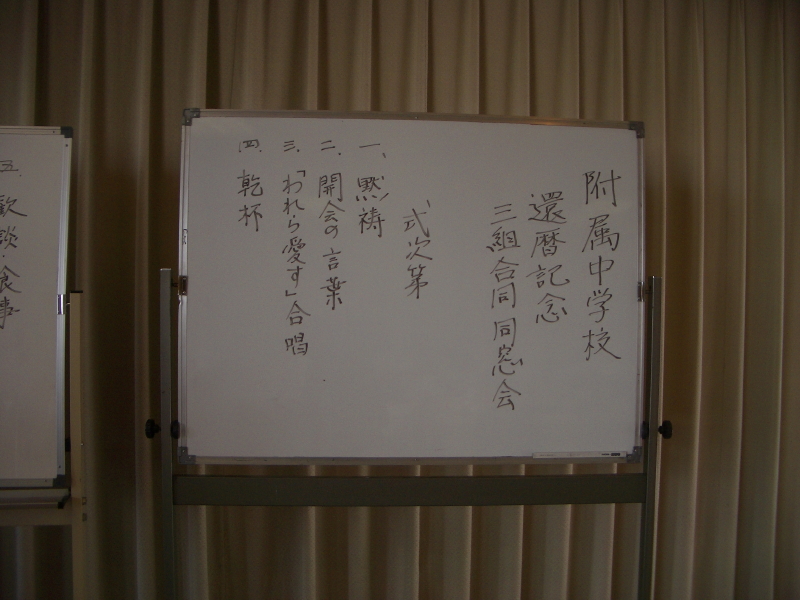 附属中学校
還暦記念
三組合同同窓会
式次第
一、黙祷
二、開会の言葉
三、「われら愛す」合唱
四、乾杯
五、歓談・食事